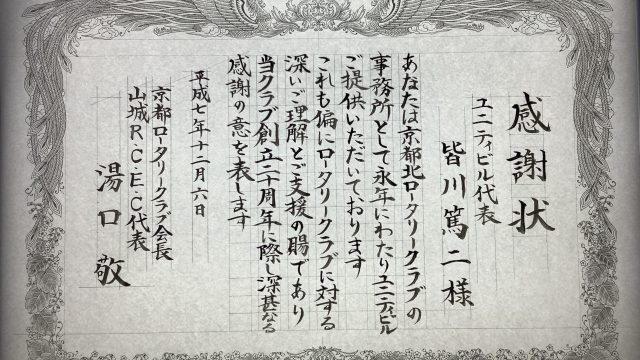 感謝状
ユニティビル代表
皆川篤二様
あなたは京都北ロータリークラブの
事務所として永年にわたりユニティビル
ご提供いただいております
これも偏にロータリークラブに対する
深いご理解とご支援の賜であり
当クラブ創立二十周年に際し深甚なる
感謝の意を表します
平成七年十二月六日
京都ロータリークラブ会長
山城R・C・E・C代表
湯口敬